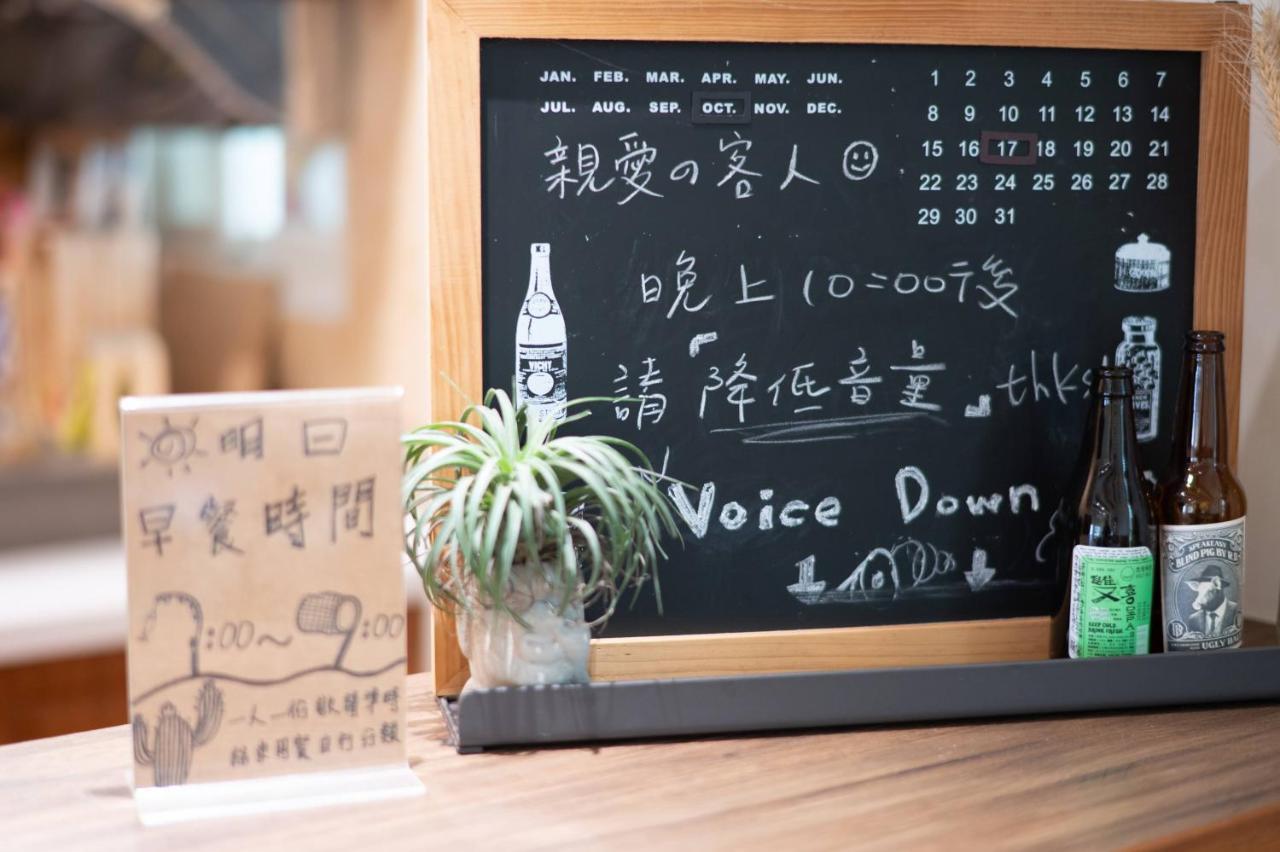 JAN. FEB. MAR. APR. MAY. JUN.
JUL. AUG. SEP. OCT. NOV. DEC.
1 2 3 4 5 6 7
8 9 10 11 12 13 14
15 16 17 18 19 20 21
22 23 24 25 26 27 28
29 30 31
親愛の客人
晚上10:00後
請「降低音量」thks
Voice Down
VICHY
明日
早餐時間
:00~ 9:00
一人一份敬請準時
SPEAKEASY
BLIND PIG BY R.B
UGLY HA
KEEP COLD
DRINK FRESH